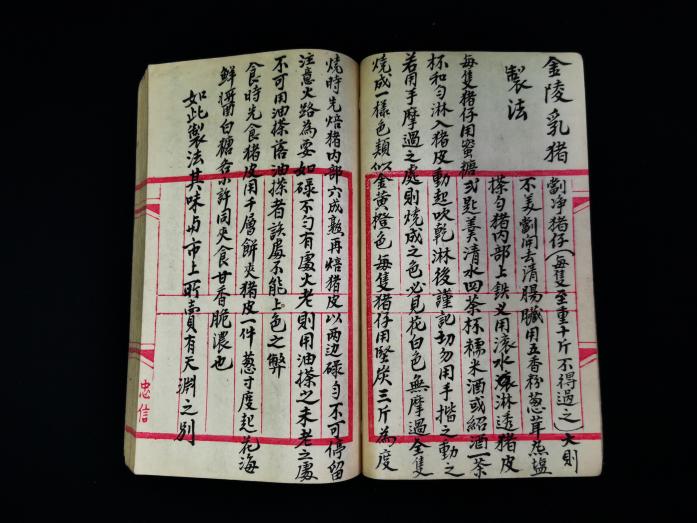 金陵乳猪
製法
劏净猪仔(每隻至重十斤不得過之)大則
不美劏開去清腸臟用五香粉葱茸盐
搽匀猪内部上鉄义用滾水淋透猪皮
每隻猪仔用蜜糖弍匙羹清水四茶杯糯米酒或紹酒一茶
杯和匀淋入猪皮動起吹乾淋後謹記切勿用手揩之動之
若用手摩過之處則燒成之色必見花白色無摩過全隻
燒成一樣色類似金黄橙色每隻猪仔用堅炭三斤為度
燒時先焙猪内部六成熟再焙猪皮以两边碌匀不可停留
注意火路為要如碌不匀有處火老則用油搽之未老之處
不可用油搽落油搽者該處不能上色之弊
食時先食猪皮用千層餅夾猪皮一件葱寸度起花海
鮮醤白糖各少許同夾食甘香脆濃也
如此製法其味与市上所賣有天淵之别
忠信